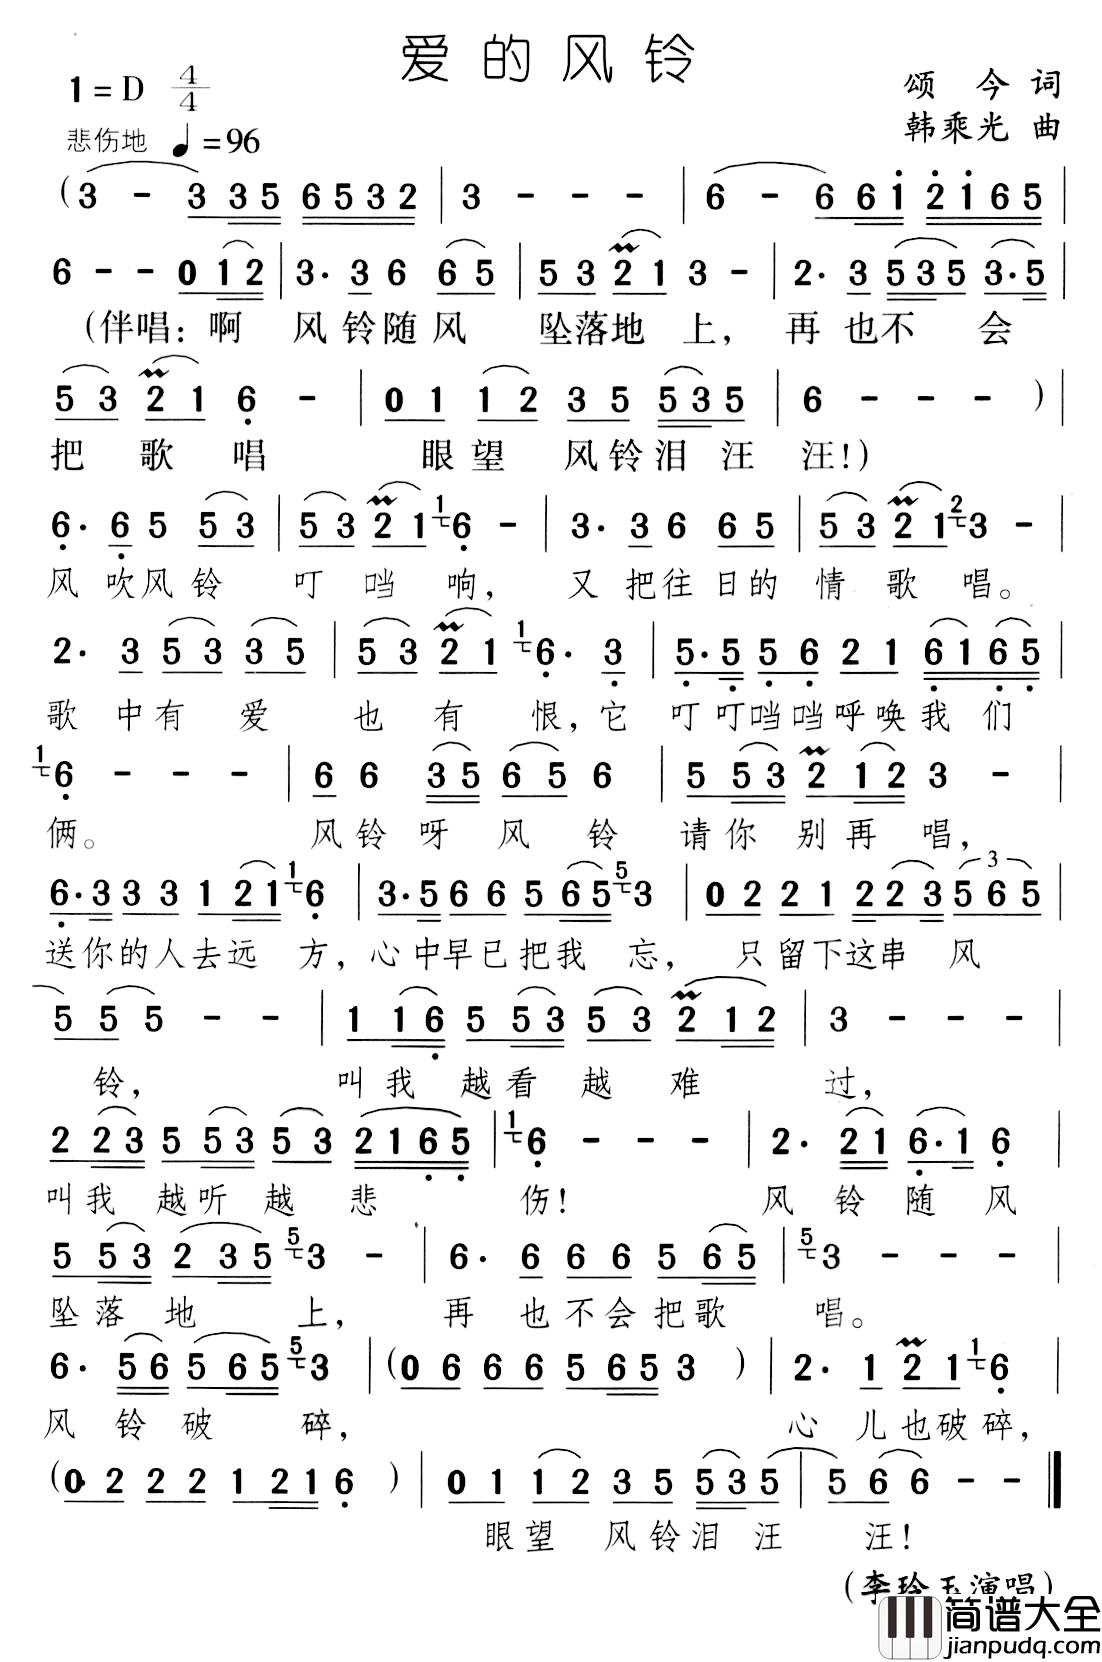 爱的风铃
1=D 4/4
颂今 词
悲伤地 ♩=96
韩乘光 曲
(3 - 3 3 5 6 5 3 2 | 3 - - - | 6 - 6 6 i 2 i 6 5 |
6 - - 0 1 2 | 3· 3 6 6 5 | 5 3 2 1 3 - | 2· 3 5 3 5 3·5 |
(伴唱：啊 风铃随风 坠落地上，再也不会
5 3 2 1 6 - | 0 1 1 2 3 5 5 3 5 | 6 - - - )|
把歌唱 眼望风铃泪汪汪!)
6· 6 5 5 3 | 5 3 2 1 1 6 - | 3· 3 6 6 5 | 5 3 2 1 2 3 - |
风吹风铃叮噹响，又把往日的情歌唱。
2· 3 5 3 3 5 | 5 3 2 1 1 6· 3 | 5·5 5 6 2 1 6 1 6 5 |
歌中有爱也有恨，它叮叮噹噹呼唤我们
1 6 - - - | 6 6 3 5 6 5 6 | 5 5 3 2 1 2 3 - |
俩。风铃呀风铃请你别再唱，
6·3 3 3 1 2 1 1 6 | 3·5 6 6 5 6 5 5 3 | 0 2 2 1 2 2 3 5 6 5 |
送你的人去远方，心中早已把我忘，只留下这串风
5 5 5 - - | 1 1 6 5 5 3 5 3 2 1 2 | 3 - - - |
铃，叫我越看越难过，
2 2 3 5 5 3 5 3 2 1 6 5 | 1 6 - - - | 2· 2 1 6·1 6 |
叫我越听越悲伤！风铃随风
5 5 3 2 3 5 5 3 - | 6· 6 6 6 5 6 5 | 5 3 - - - |
坠落地上，再也不会把歌唱。
6· 5 6 5 6 5 5 3 | (0 6 6 6 5 6 5 3 ) | 2· 1 2 1 1 6 |
风铃破碎，心儿也破碎，
(0 2 2 2 1 2 1 6 ) | 0 1 1 2 3 5 5 3 5 | 5 6 6 - - ‖
眼望风铃泪汪汪！
(李玲玉演唱)
简谱大全
jianpudq.com